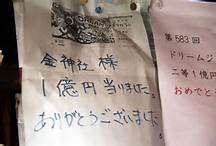 金神社 様
1億円 当りました。
ありがとうございました
第583回
ドリームジ
二等1億円
おめで